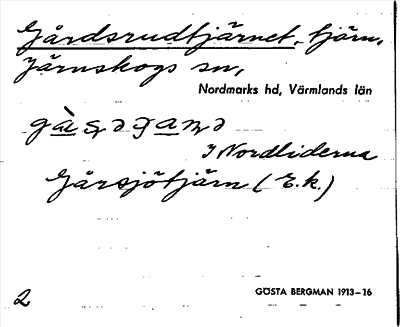 Gårdsrudtjärnet, tjärn,
Järnskogs sn,
Nordmarks hd, Värmlands län
I Nordliderna
Gårsjötjärn (E.k.)
2 GÖSTA BERGMAN 1913–16